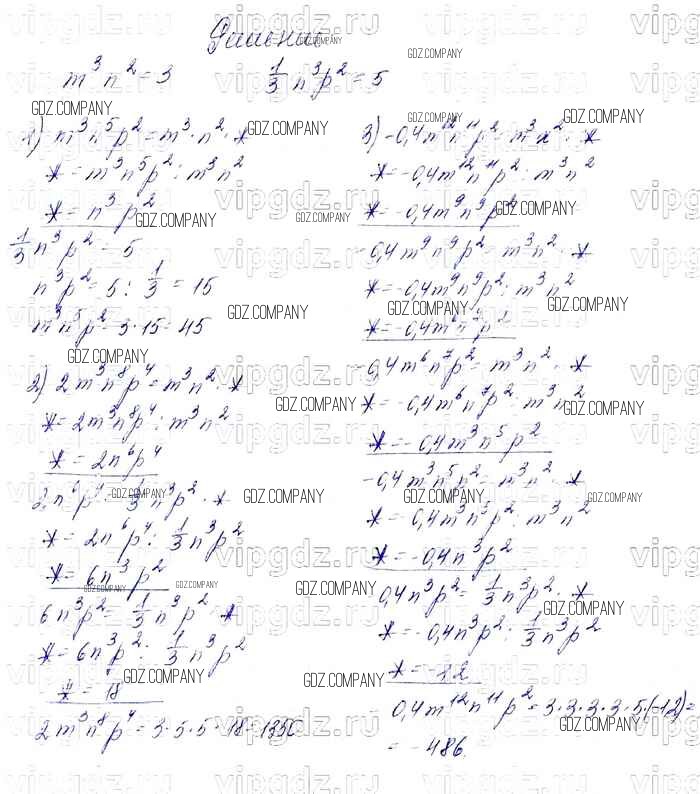 Решение
m³n² = 3     1/3 n³p² = 5
1) m³n⁵p² = m³·n²·*
* = m³n⁵p² : m³n²
* = n³p²
1/3 n³p² = 5
n³p² = 5 : 1/3 = 15
m³n⁵p² = 3·15 = 45
2) 2m³n⁸p⁴ = m³n²·*
* = 2m³n⁸p⁴ : m³n²
* = 2n⁶p⁴
2n⁶p⁴ = 1/3 n³p²·*
* = 2n⁶p⁴ : 1/3 n³p²
* = 6n³p²
6n³p² = 1/3 n³p²·*
* = 6n³p² : 1/3 n³p²
* = 18
2m³n⁸p⁴ = 3·5·5·18 = 1350
3) -0,4m¹²n¹¹p² = m³n²·*
* = -0,4m¹²n¹¹p² : m³n²
* = -0,4m⁹n⁹p²
-0,4m⁹n⁹p² = m³n²·*
* = -0,4m⁹n⁹p² : m³n²
* = -0,4m⁶n⁷p²
-0,4m⁶n⁷p² = m³n²·*
* = -0,4m⁶n⁷p² : m³n²
* = -0,4m³n⁵p²
-0,4m³n⁵p² = m³n²·*
* = -0,4m³n⁵p² : m³n²
* = -0,4n³p²
-0,4n³p² = 1/3 n³p²·*
* = -0,4n³p² : 1/3 n³p²
* = -1,2
-0,4m¹²n¹¹p² = 3·3·3·3·5·(-1,2) =
= -486.